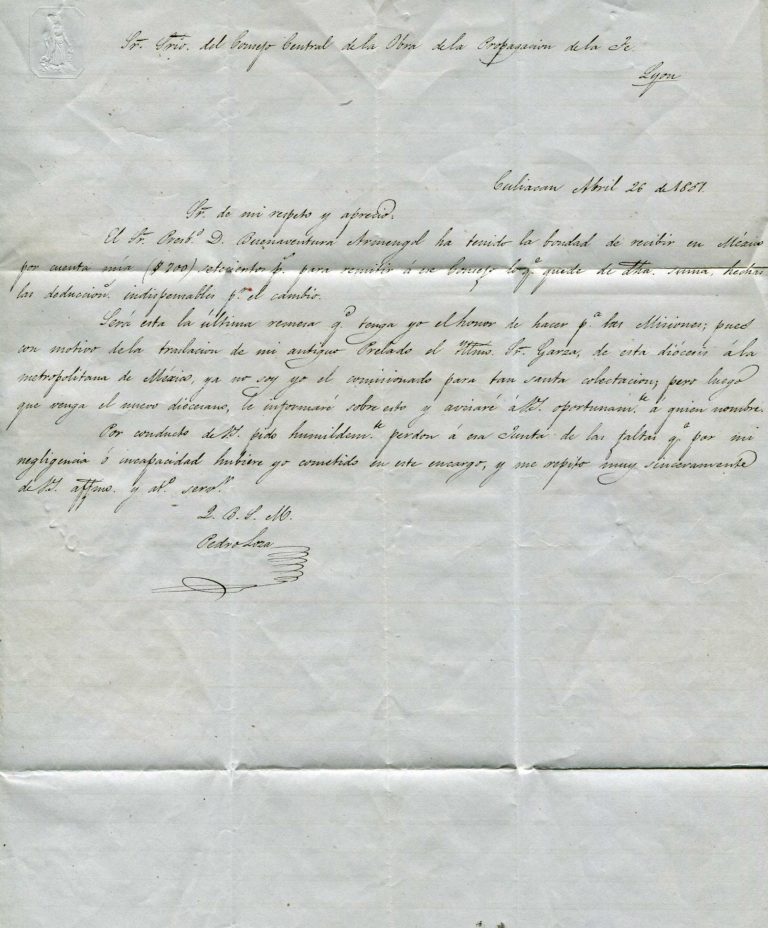 Sr. Srio. del Consejo Central de la Obra de la Propagacion de la Fe.
Lyon
Culiacan Abril 26 de 1851.
Sr. de mi respeto y aprecio:
El Sr. Presb.º D. Buenaventura Armengol ha tenido la bondad de recibir en México
por cuenta mía ($700) setecientos p.ˢ para remitir á ese Consejo lo q.ᵉ quede de dha. suma, hechas
las deduccion.ˢ indispensables p.ʳ el cambio.
Será esta la última remesa q.ᵉ tenga yo el honor de hacer p.ᵃ las Misiones; pues
con motivo de la traslacion de mi antiguo Prelado el Illmo. Sr. Garza, de esta diócesis á la
metropolitana de México, ya no soy yo el comisionado para tan santa colectacion; pero luego
que venga el nuevo diocesano, le informaré sobre esto y avisaré á V. oportunam.ᵗᵉ á quien nombre.
Por conducto de V. pido humildem.ᵗᵉ perdon á esa Junta de las faltas q.ᵉ por mi
negligencia ó incapacidad hubiere yo cometido en este encargo, y me repito muy sinceramente
de V. affmo. y at.º serv.ʳ
Q. B. S. M.
Pedro Loza